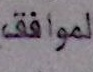 لموافق